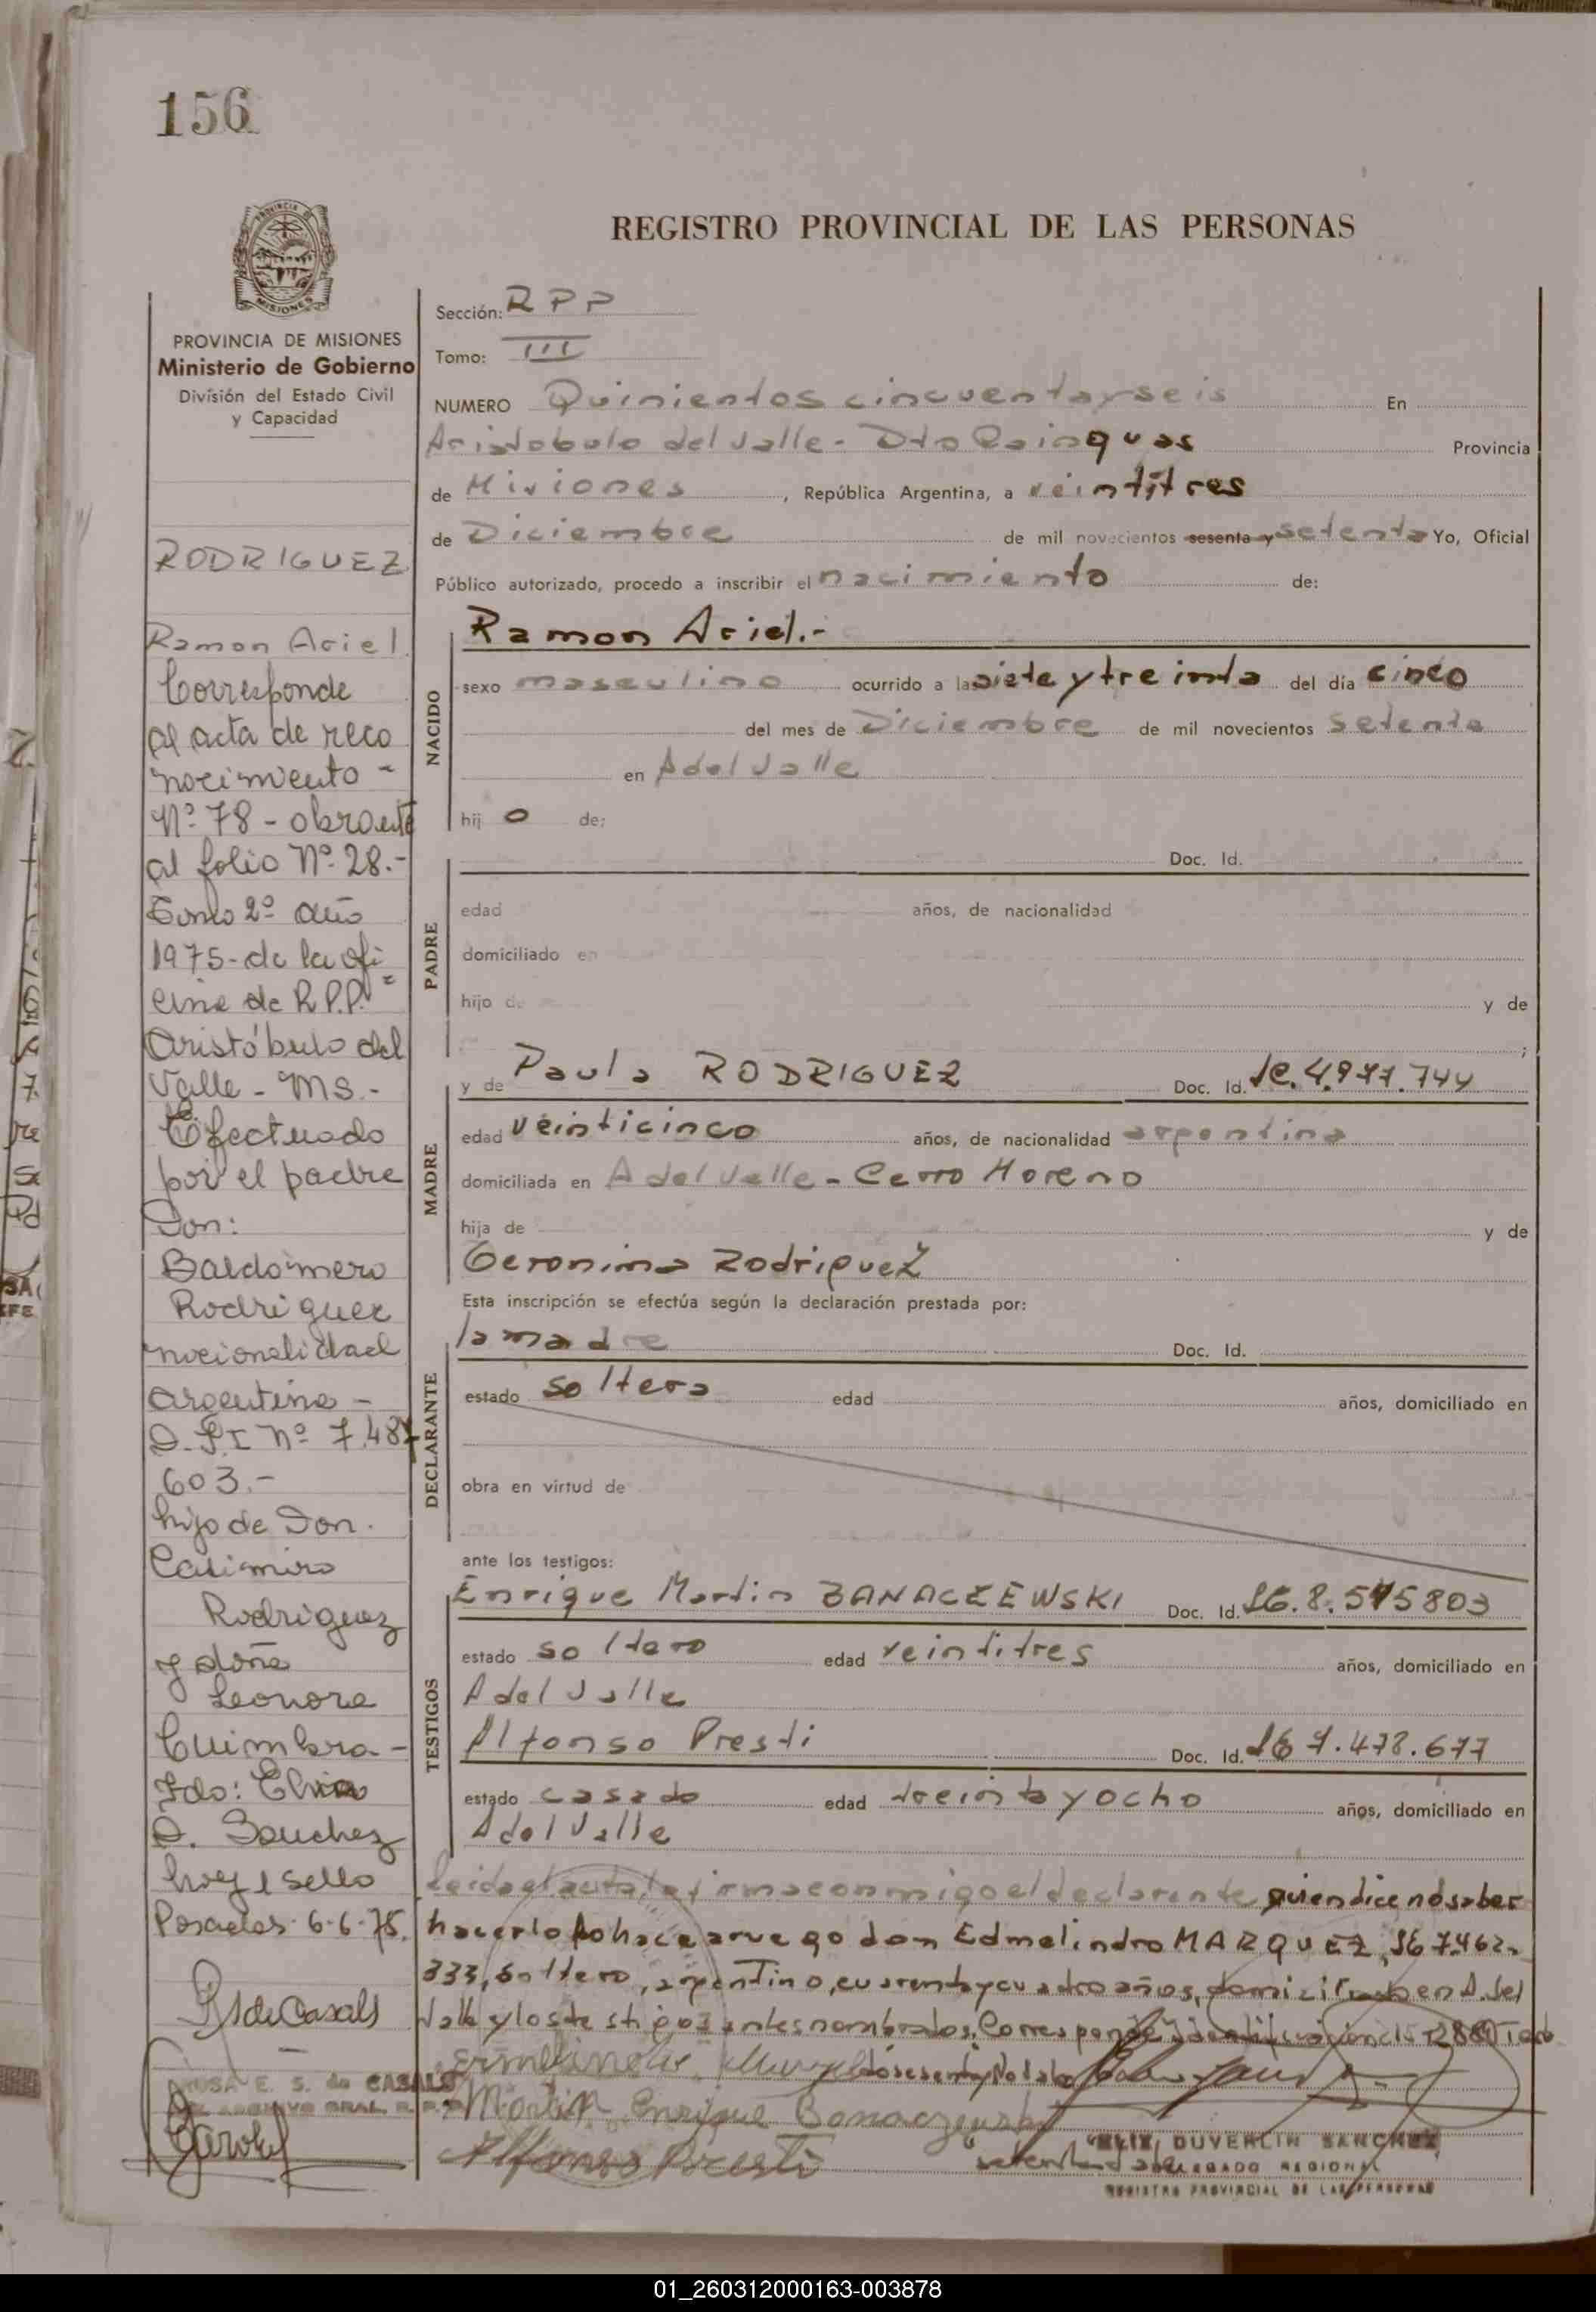 156
REGISTRO PROVINCIAL DE LAS PERSONAS
PROVINCIA DE MISIONES
Ministerio de Gobierno
División del Estado Civil
y Capacidad
RODRIGUEZ
Ramon Ariel
Corresponde
al acta de reco
nocimiento -
Nº 78 - obrante
al folio Nº 28.-
Tomo 2º año
1975 - de la ofi
cina de R.P.P.
Aristóbulo del
Valle - Ms.-
Efectuado
por el padre
Don:
Baldomero
Rodriguez
nacionalidad
argentina -
D.N.I Nº 7.487
603.-
hijo de Don
Casimiro
Rodriguez
y doña
Leonora
Cuimbra -
Fdo: Elvia
D. Sanchez
hay 1 sello
Posadas 6-6-75.
E. S. de CASALS
Sección: RPP
Tomo: III
NUMERO Quinientos cincuenta y seis En
Aristobulo del Valle - Dto Cainguas Provincia
de Misiones, República Argentina, a veintitres
de Diciembre de mil novecientos sesenta y setenta Yo, Oficial
Público autorizado, procedo a inscribir el nacimiento de:
NACIDO
Ramon Ariel.-
sexo masculino ocurrido a las siete y treinta del día cinco
del mes de Diciembre de mil novecientos setenta
en A del Valle
hijo de:
PADRE
Doc. Id.
edad años, de nacionalidad
domiciliado en
hijo de y de
;
MADRE
y de Paula RODRIGUEZ Doc. Id. 4.977.744
edad veinticinco años, de nacionalidad argentina
domiciliada en A del Valle - Cerro Moreno
hija de y de
Geronima Rodriguez
Esta inscripción se efectúa según la declaración prestada por:
DECLARANTE
la madre Doc. Id.
estado soltera edad años, domiciliado en
obra en virtud de
ante los testigos:
TESTIGOS
Enrique Martin BANACZEWSKI Doc. Id. 8.575803
estado soltero edad veintitres años, domiciliado en
A del Valle
Alfonso Presti Doc. Id. 7.478.677
estado casado edad treinta y ocho años, domiciliado en
A del Valle
Leida el acta, la firma conmigo el declarante quien dice no saber
hacerlo lo hace a ruego don Edmelindro MARQUEZ, 7.462.
333, soltero, argentino, cuarenta y cuatro años, domiciliado en A. del
Valle y los testigos antes nombrados. Corresponde
Martin Enrique Banaczewski
Alfonso Presti
DUVERLIN SANCHEZ
DELEGADO REGIONAL
REGISTRO PROVINCIAL DE LAS PERSONAS
01_260312000163-003878